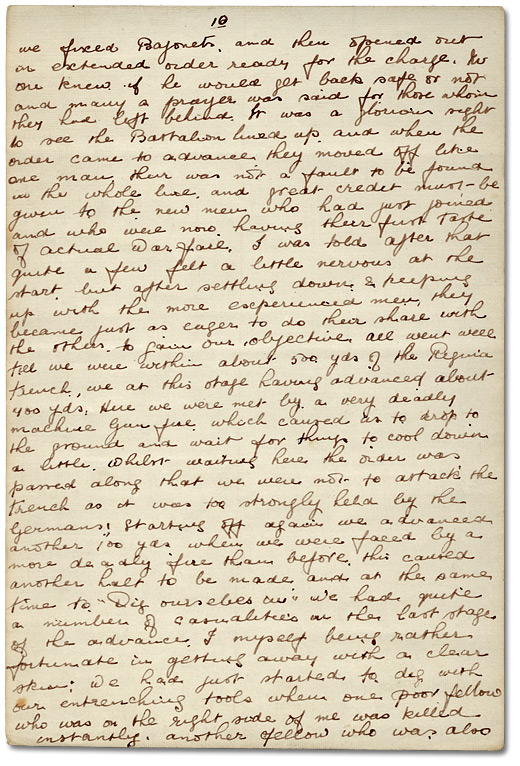 10
we fixed Bayonets, and then opened out
in extended order ready for the charge. No
one knew if he would get back safe or not
and many a prayer was said for those whom
they had left behind. It was a glorious sight
to see the Battalion lined up and when the
order came to advance they moved off like
one man, their was not a fault to be found
in the whole line, and great credit must be
given to the new men who had just joined
and who were now having their first taste
of actual Warfare. I was told after that
quite a few felt a little nervous at the
start but after settling down & keeping
up with the more experienced men, they
became just as eager to do their share with
the others to gain our objective, all went well
till we were within about 500 yds of the Regina
trench, we at this stage having advanced about
400 yds. Here we were met by a very deadly
machine Gun fire, which caused us to drop to
the ground and wait for things to cool down
a little. Whilst waiting here the order was
passed along that we were not to attack the
trench as it was too strongly held by the
Germans! Starting off again we advanced
another 100 yds when we were faced by a
more deadly fire than before, this caused
another halt to be made and at the same
time to "Dig ourselves in" we had quite
a number of casualities in the last stage
of the advance, I myself being rather
fortunate in getting away with a clear
skin; We had just started to dig with
our entrenching tools when one poor fellow
who was on the right side of me was killed
instantly. another fellow who was also